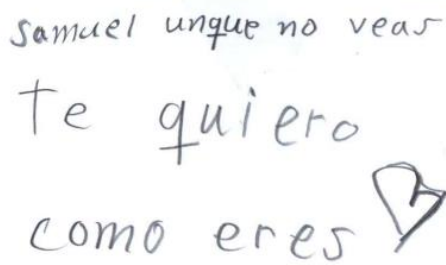 samuel unque no veas
te quiero
como eres